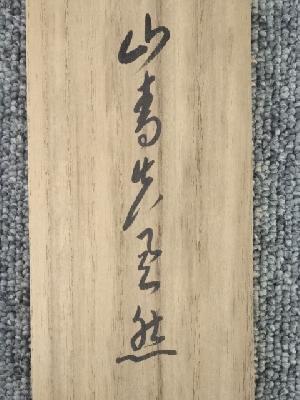 山青花欲然